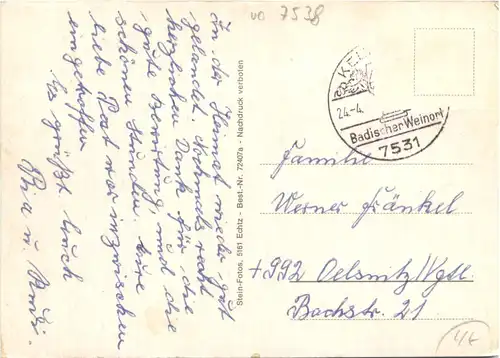 vo 7538
In der Heimat wieder gut
gelandet. Nochmals recht
herzlichen Dank für die
gute Bewirtung, und die
schönen Stunden. Eure
liebe Post war inzwischen
eingetroffen
Es grüßt Euch
Pia u.
Stein-Fotos, 5161 Echtz - Best.-Nr. 72407a - Nachdruck verboten
24.-4.
Badischer Weinort
7531
Familie
Werner Fränkel
+992 Oelsnitz/Vgtl.
Bachstr. 21